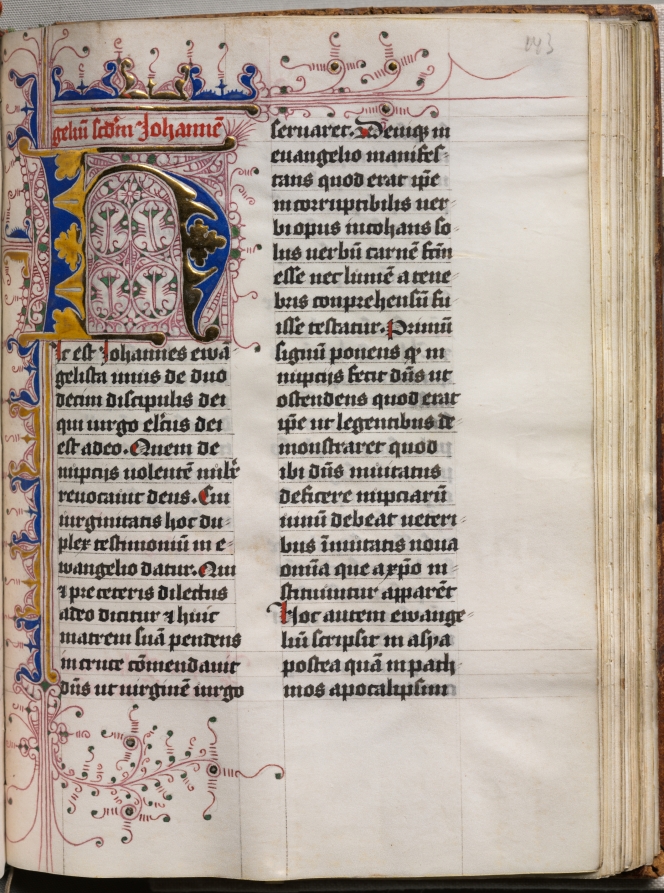 143
geliū scd'm Johannē
Hic est Johannes ewā
gelista unus de duo
decim discipulis dei
qui uirgo el'cus dei
est adeo. Quem de
nuptijs uolentē nub'e
reuocauit deus. Cui
uirginitatis hoc du=
plex testimoniū in e=
wangelio datur. Qui
⁊ pre ceteris dilectus
adeo dicitur ⁊ huic
matrem suā pendens
in cruce cōmendauit
dūs ut uirginē uirgo
seruaret. Deniq; in
euangelio manifes=
tans quod erat ip̄e
incorruptibilis uer=
bi opus inchoans so
lus uerbū carnē fc̄m
esse nec lumē a tene
bris conprehensū fu
isse testatur. Primū
signū ponens qđ in
nuptijs fecit dūs ut
ostendens quod erat
ip̄e ut legentibus de
monstraret quod
ibi dūs inuitatus
deficere nupciarū
uinū debeat ueteri=
bus īmutatis noua
omīa que a xp̄o in=
stituuntur apparēt
Hoc autem ewange=
liū scripsit in asya
postea quā in path
mos apocalipsim